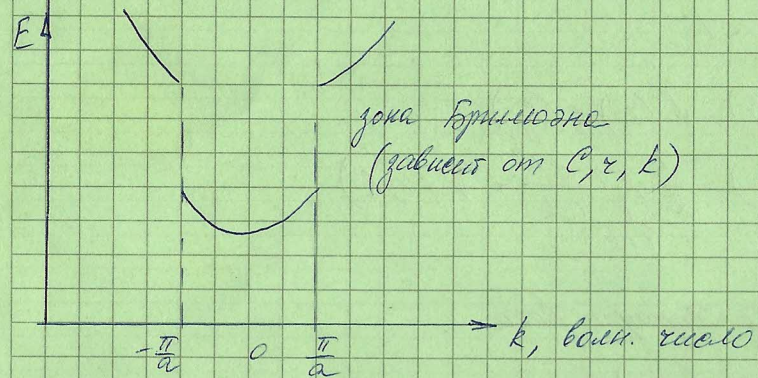 E
зона Бриллюэна
(зависит от C, r, k)
-π/a 0 π/a
k, волн. число